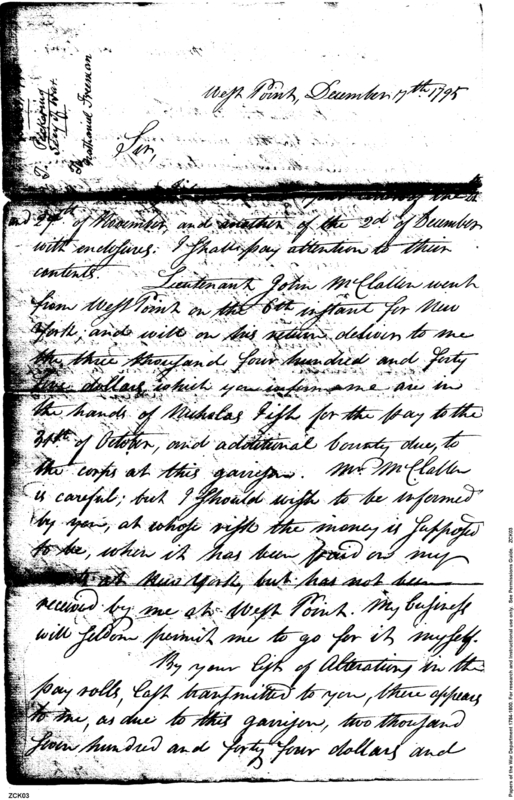 To Pickering
Secy of War.
Nathaniel Freeman
West Point, December 17th 1795
Sir,
and 27th of November, and another of the 2d of December
with enclosures: I shall pay attention to their
contents.
Lieutenant John McClallen went
from West Point on the 6th instant for New
York, and will on his return deliver to me
the three thousand four hundred and forty
five dollars, which you inform me are in
the hands of Nicholas Fish for the pay to the
31st of October, and additional bounty due, to
the corps at this garrison. Mr. McClallen
is careful; but I should wish to be informed
by you, at whose risk the money is supposed
to be, when it has been paid on my
at New York, but has not been
received by me at West Point. My business
will seldom permit me to go for it myself.
By your List of Alterations in the
pay rolls, last transmitted to you, there appears
to me, as due to this garrison, two thousand
seven hundred and forty four dollars and
ZCK03
Papers of the War Department 1784-1800. For research and instructional use only. See Permissions Guide. ZCK03